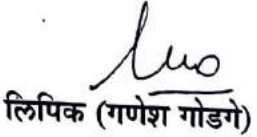 लिपिक (गणेश गोडगे)